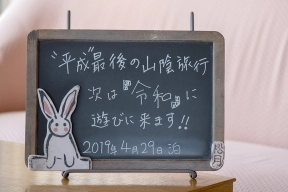 "平成"最後の山陰旅行
次は『令和』に
遊びに来ます!!
2019年4月29日泊